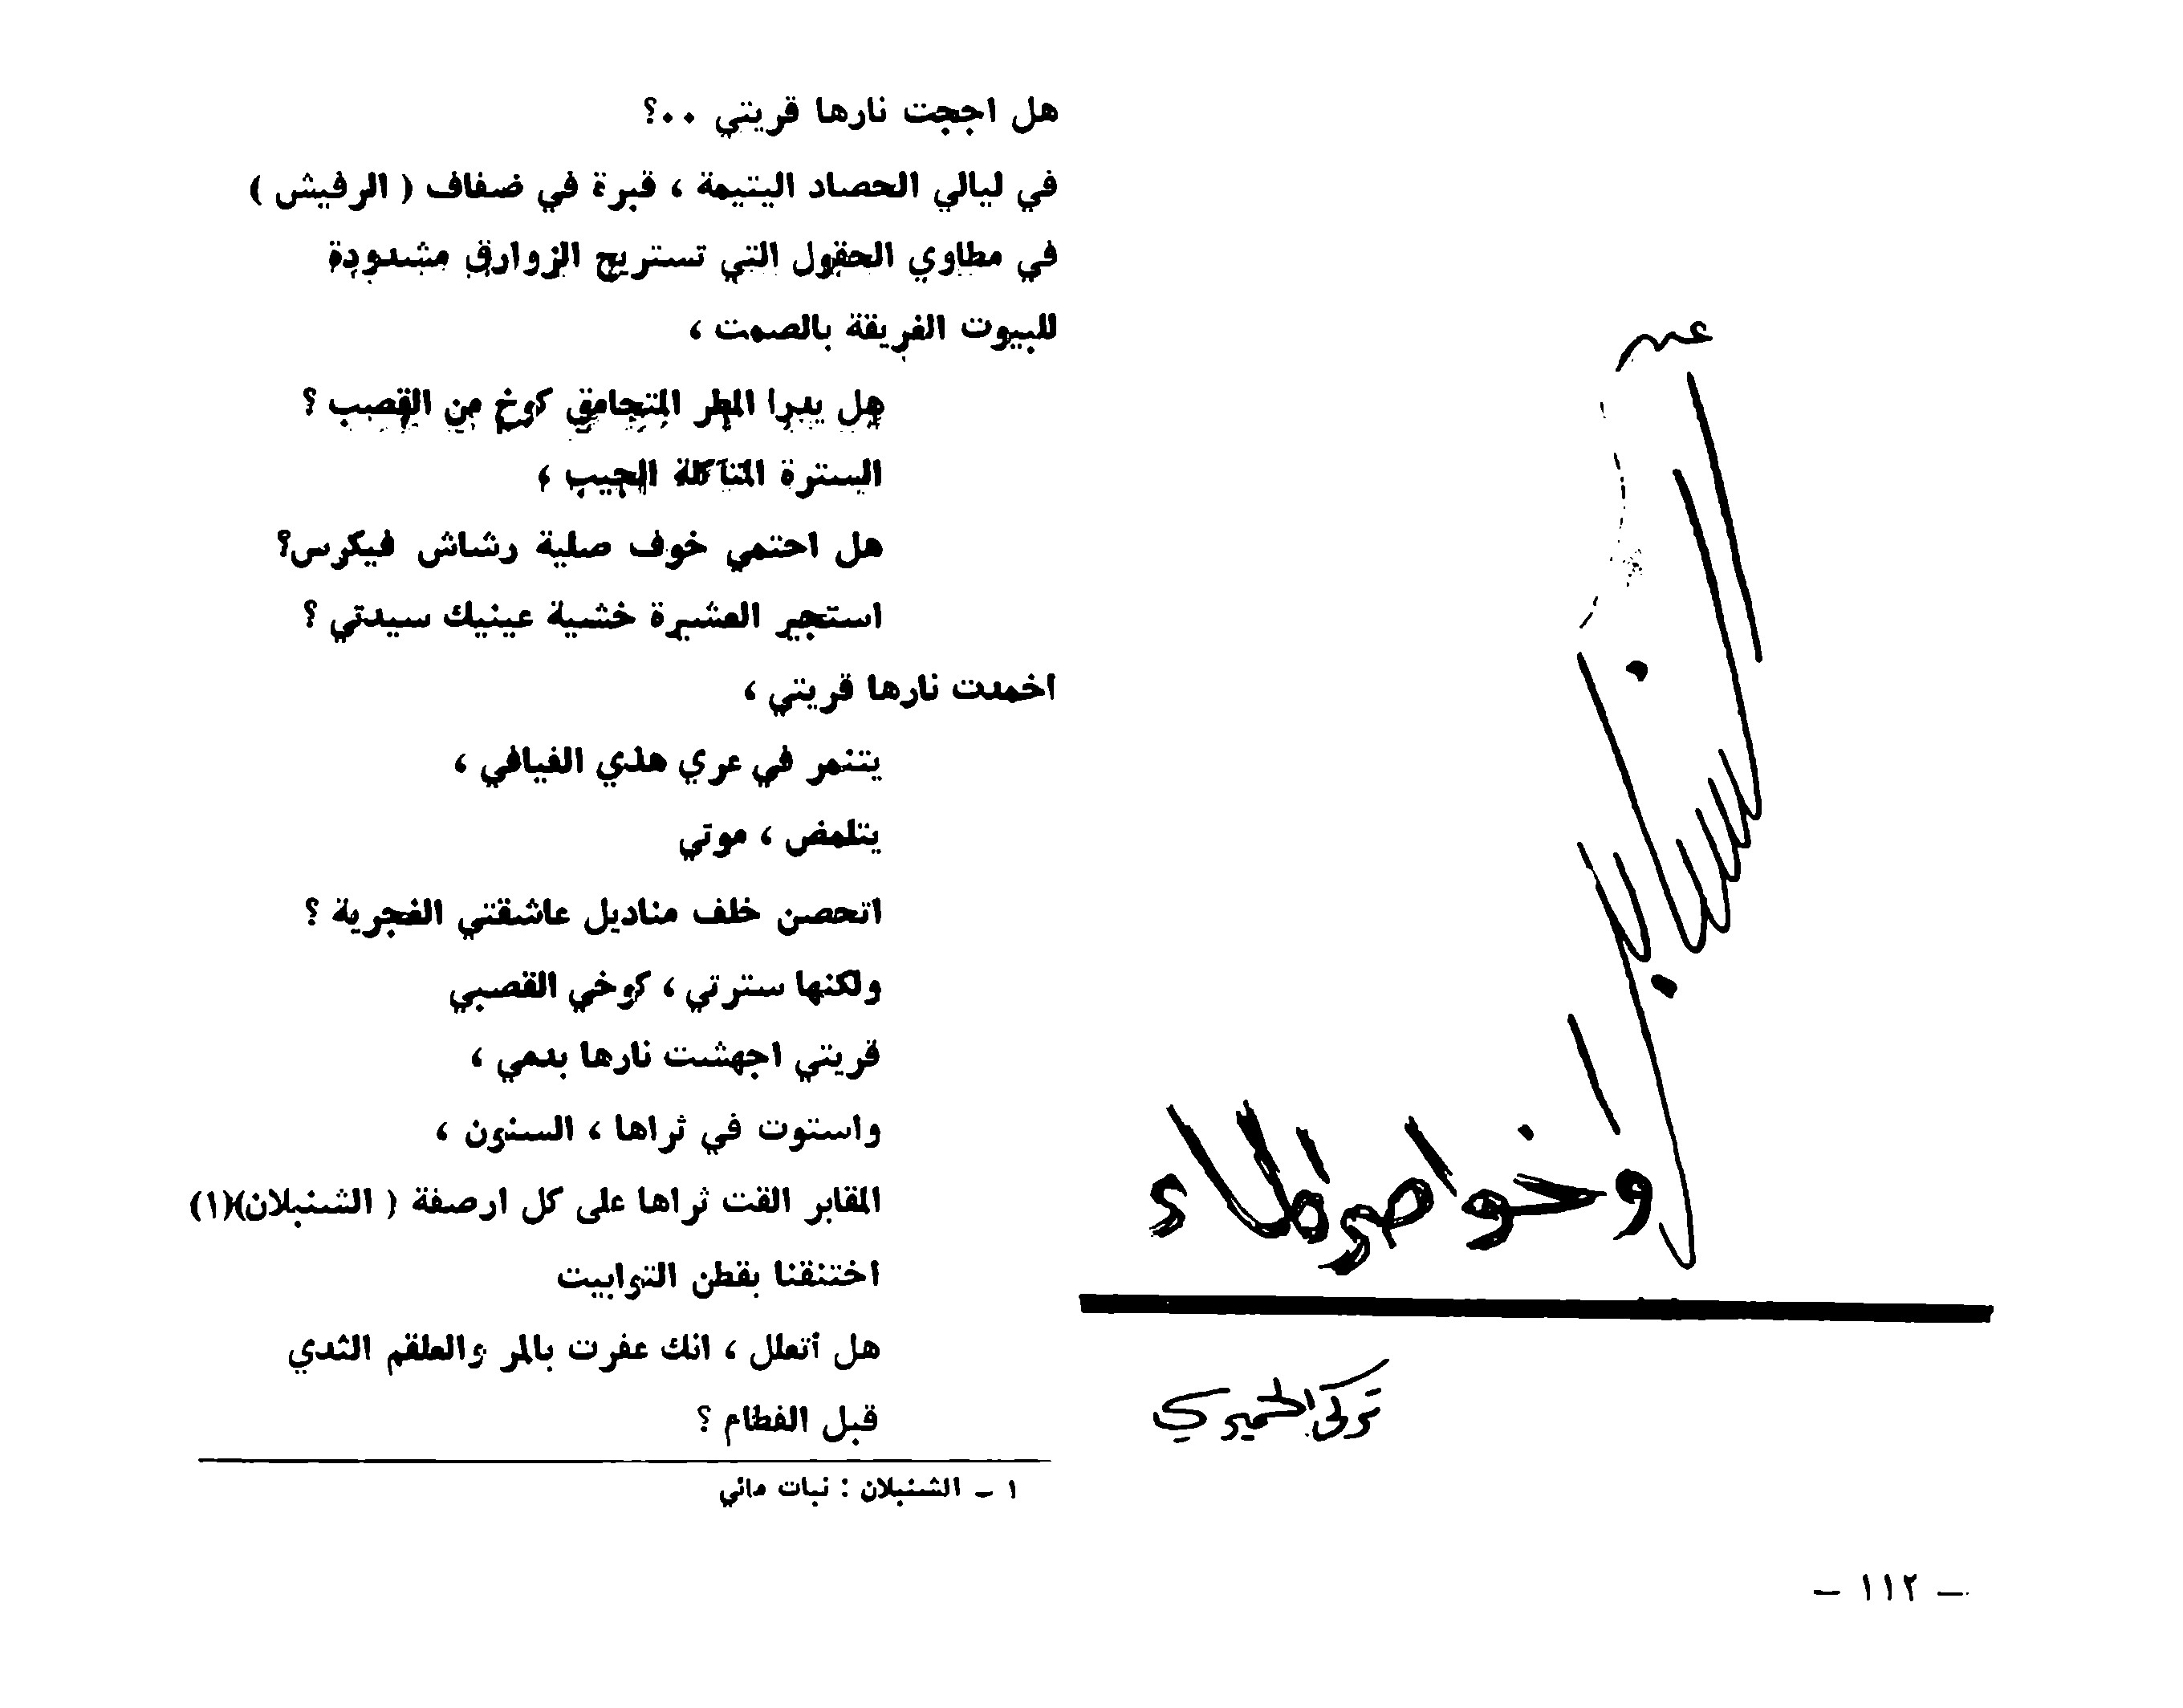 وخواصر الماء
تركي الحميري
هل اججت نارها قريتي ..؟
في ليالي الحصاد اليتيمة ، قبرة في ضفاف ( الرفيش )
في مطاوي الحقول التي تستريح الزوارق مشدودة
للبيوت الغريقة بالصمت ،
هل يدرا المطر المتحامق كوخ من القصب ؟
السترة المتآكلة الجيب ،
هل احتمي خوف صلية رشاش فيكرس؟
استجير العشيرة خشية عينيك سيدتي ؟
اخمدت نارها قريتي ،
يتنمر في عري هذي الفيافي ،
يتلمض ، موتي
اتحصن خلف مناديل عاشقتي الغجرية ؟
ولكنها سترتي ، كوخي القصبي
قريتي اجهشت نارها بدمي ،
واستوت في ثراها ، السنون ،
المقابر القت ثراها على كل ارصفة ( الشنبلان)(١)
اختنقنا بقطن التوابيت
هل أتعلل ، انك عفرت بالمر والعلقم الثدي
قبل الفطام ؟
١ - الشنبلان : نبات مائي
- ١١٢ -